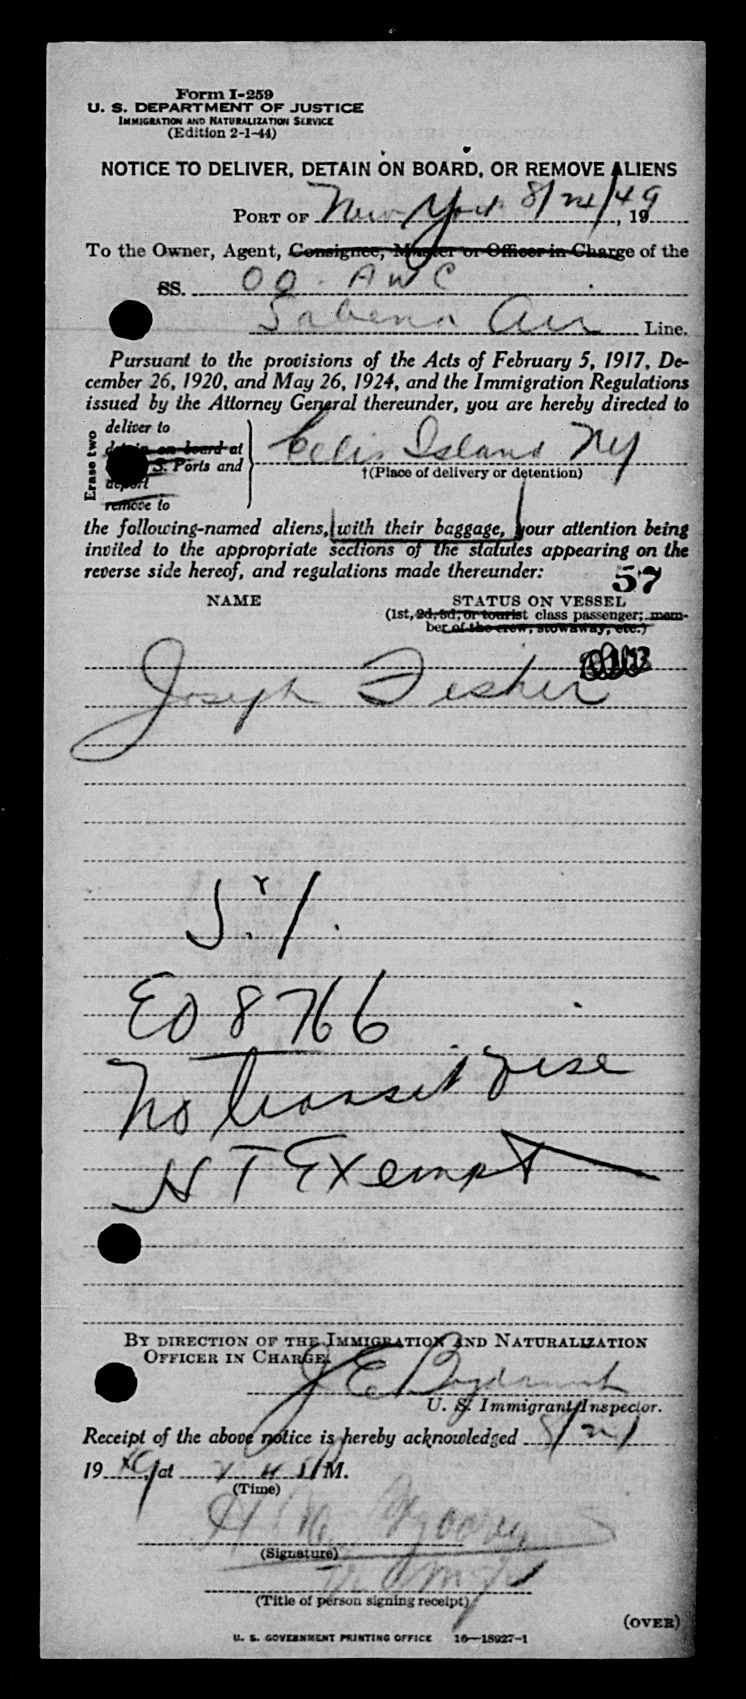 Form I-259
U. S. DEPARTMENT OF JUSTICE
IMMIGRATION AND NATURALIZATION SERVICE
(Edition 2-1-44)
NOTICE TO DELIVER, DETAIN ON BOARD, OR REMOVE ALIENS
PORT OF New York 8/24/49, 19
To the Owner, Agent, Consignee, Master or Officer in Charge of the
SS. OO-AWC
Sabena Air Line.
Pursuant to the provisions of the Acts of February 5, 1917, De-
cember 26, 1920, and May 26, 1924, and the Immigration Regulations
issued by the Attorney General thereunder, you are hereby directed to
Erase two
deliver to
detain on board at
S. Ports and
deport
remove to
Ellis Island NY
†(Place of delivery or detention)
the following-named aliens, with their baggage, your attention being
invited to the appropriate sections of the statutes appearing on the
reverse side hereof, and regulations made thereunder:
57
NAME STATUS ON VESSEL
(1st, 2d, 3d, or tourist class passenger; mem-
ber of the crew, stowaway, etc.)
Joseph Fisher
S. I.
EO 8766
No transit vise
HT Exempt
BY DIRECTION OF THE IMMIGRATION AND NATURALIZATION
OFFICER IN CHARGE.
J E
U. S. Immigrant Inspector.
Receipt of the above notice is hereby acknowledged 8/21
19 49, at M.
(Time)
(Signature)
(Title of person signing receipt)
(OVER)
U. S. GOVERNMENT PRINTING OFFICE 16—18927-1